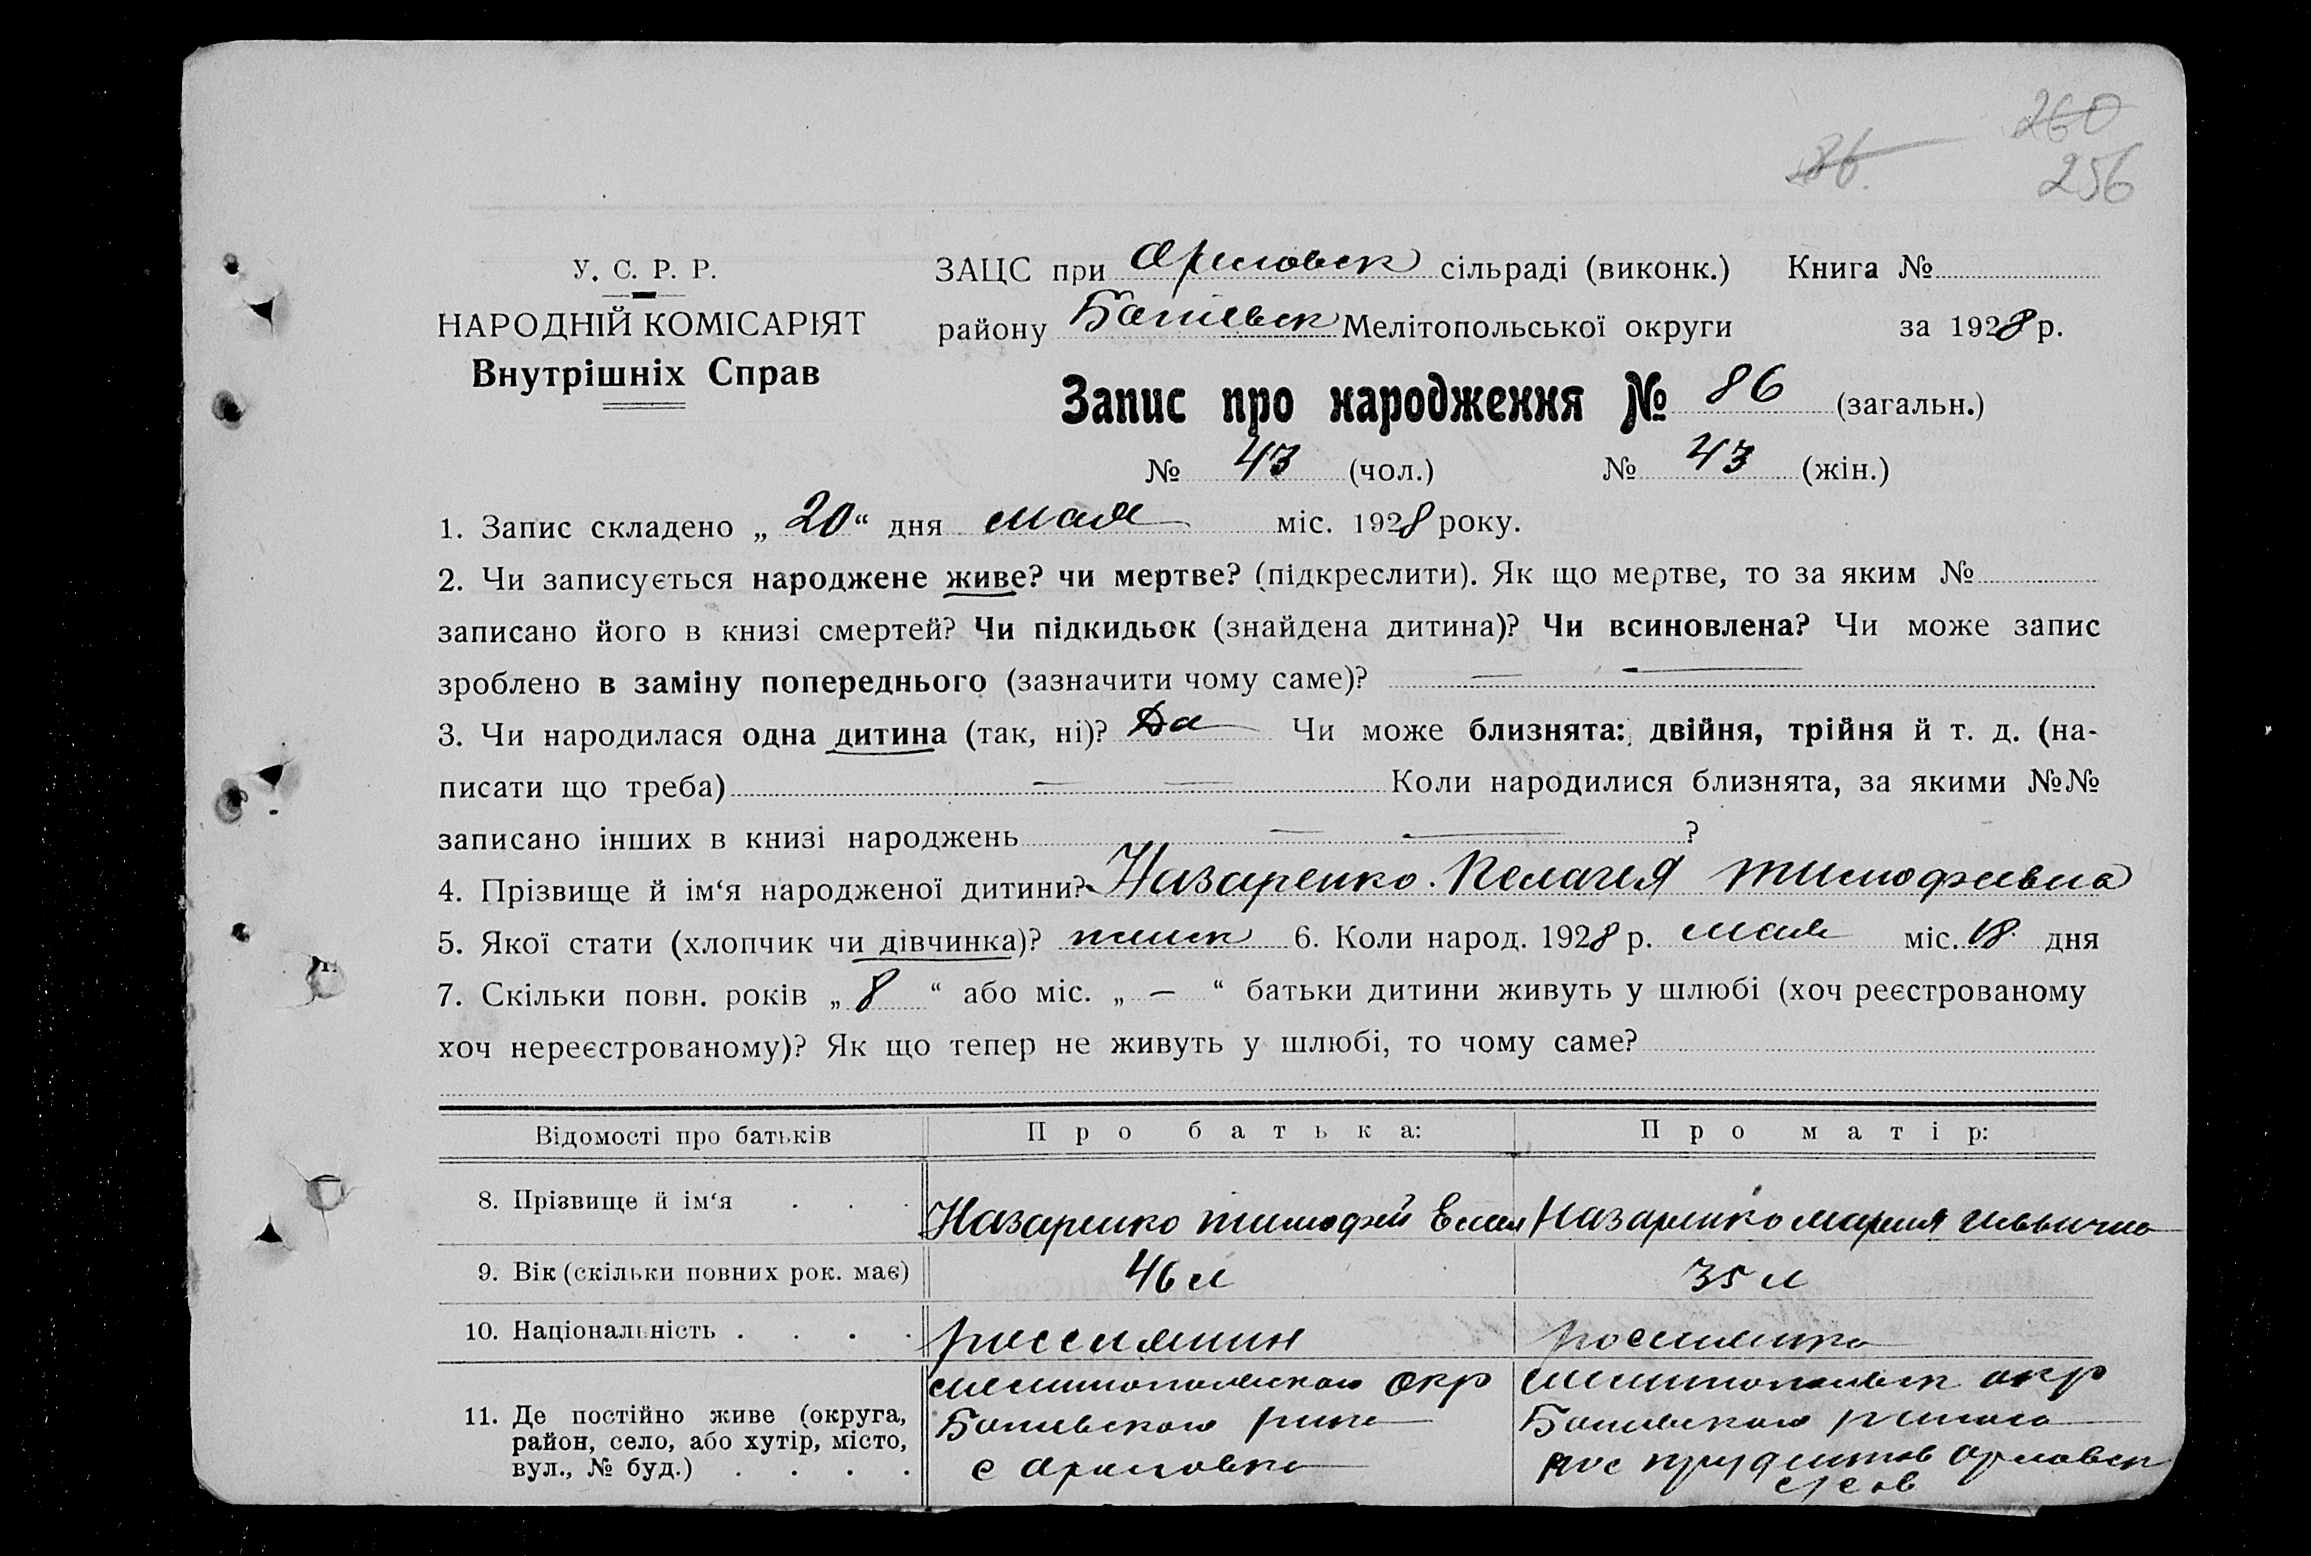 260
86.
256
У. С. Р. Р.
НАРОДНІЙ КОМІСАРІЯТ
Внутрішніх Справ
ЗАЦС при сільраді (виконк.) Книга №
району Мелітопольської округи за 1928 р.
Запис про народження № 86 (загальн.)
№ 43 (чол.) № 43 (жін.)
1. Запис складено „ 20 “ дня мая міс. 1928 року.
2. Чи записується народжене живе? чи мертве? (підкреслити). Як що мертве, то за яким №
записано його в книзі смертей? Чи підкидьок (знайдена дитина)? Чи всиновлена? Чи може запис
зроблено в заміну попереднього (зазначити чому саме)? — —
3. Чи народилася одна дитина (так, ні)? Да Чи може близнята: двійня, трійня й т. д. (на-
писати що треба) — — Коли народилися близнята, за якими №№
записано інших в книзі народжень — — ?
4. Прізвище й ім‘я народженої дитини? Назаренко Пелагея Тимофеевна
5. Якої стати (хлопчик чи дівчинка)? женск 6. Коли народ. 1928 р. мая міс. 18 дня
7. Скільки повн. років „ 8 “ або міс. „ — “ батьки дитини живуть у шлюбі (хоч реєстрованому
хоч нереєстрованому)? Як що тепер не живуть у шлюбі, то чому саме?
Відомості про батьків Про батька: Про матір:
8. Прізвище й ім‘я . . . Назаренко Тимофей Назаренко Мария
9. Вік (скільки повних рок. має) 46 л 35 л
10. Національність . . . . россиянин россиянка
11. Де постійно живе (округа,
район, село, або хутір, місто,
вул., № буд.) . . . .
Мелитопольского окр
района
с
Мелитопольск окр
района